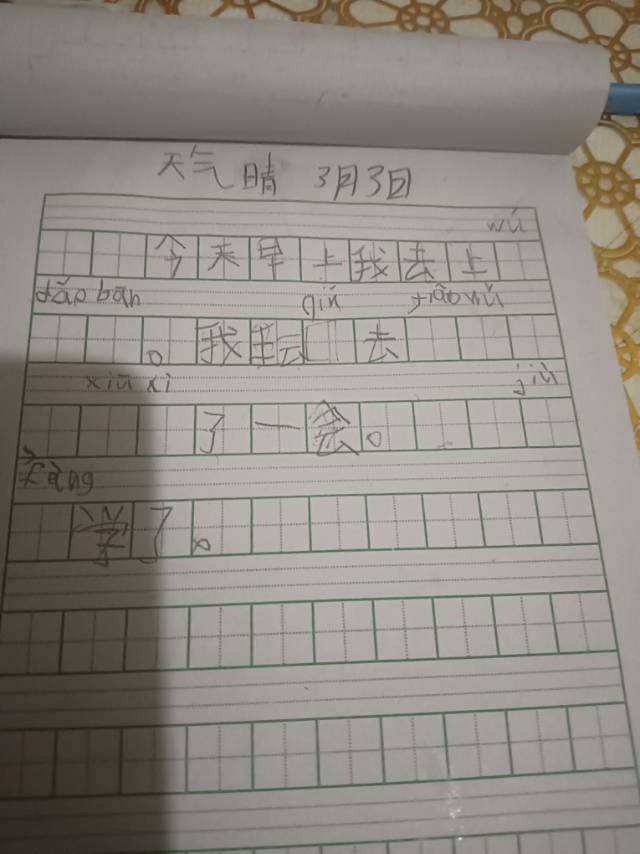 天气晴 3月3日
wǔ
今天早上我去上
dǎo bān tiào wǔ
。我 去
xiū xi jiù
了一会。
fàng
学了。